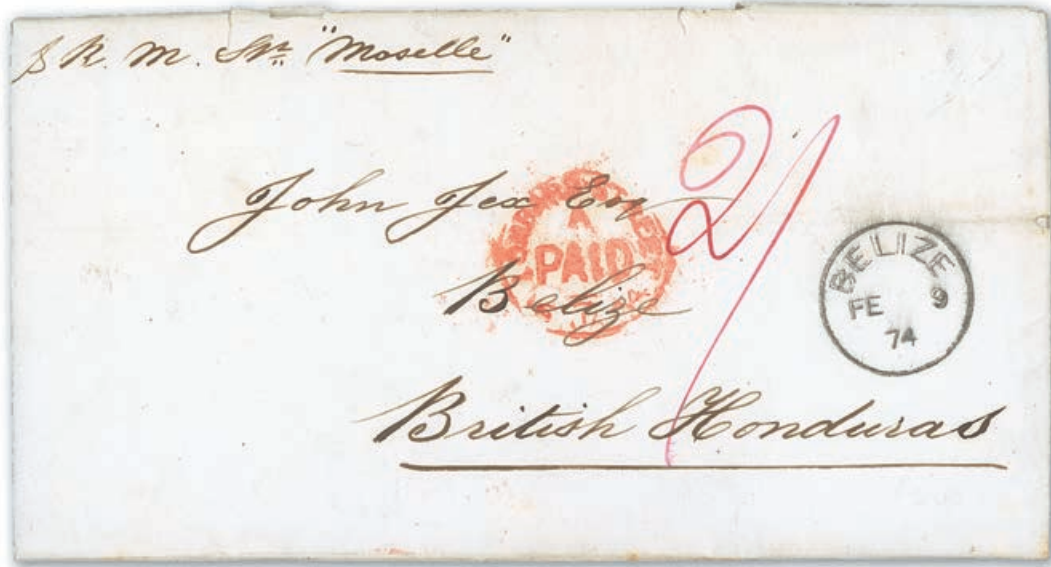 p R. M. Str "Moselle"
John Jex Esq
Belize
British Honduras
2/
A
PAID
BELIZE
FE 9
74